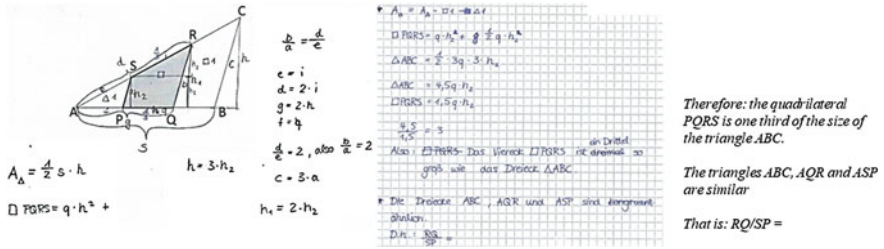 C
R
S
A
P
Q
B
h
b/a = d/e
e = i
d = 2·i
g = 2·h
f = q
d/e = 2, also b/a = 2
c = 3·a
S
A△ = 1/2 s·h
h = 3·h₂
□ PQRS = q·h² +
h₁ = 2·h₂
□ PQRS = q·h₂² + 1/2 q·h₂²
△ABC = 1/2 · 3q · 3·h₂
△ABC = 4,5q·h₂
□PQRS = 1,5q·h₂
4,5/1,5 = 3
ein Drittel
Also: □PQRS Das Viereck □PQRS ist dreimal so
groß wie das Dreieck △ABC.
• Die Dreiecke ABC, AQR und ASP sind kongruent
ähnlich.
D.h.: RQ/SP =
Therefore: the quadrilateral
PQRS is one third of the size of
the triangle ABC.
The triangles ABC, AQR and ASP
are similar
That is: RQ/SP =